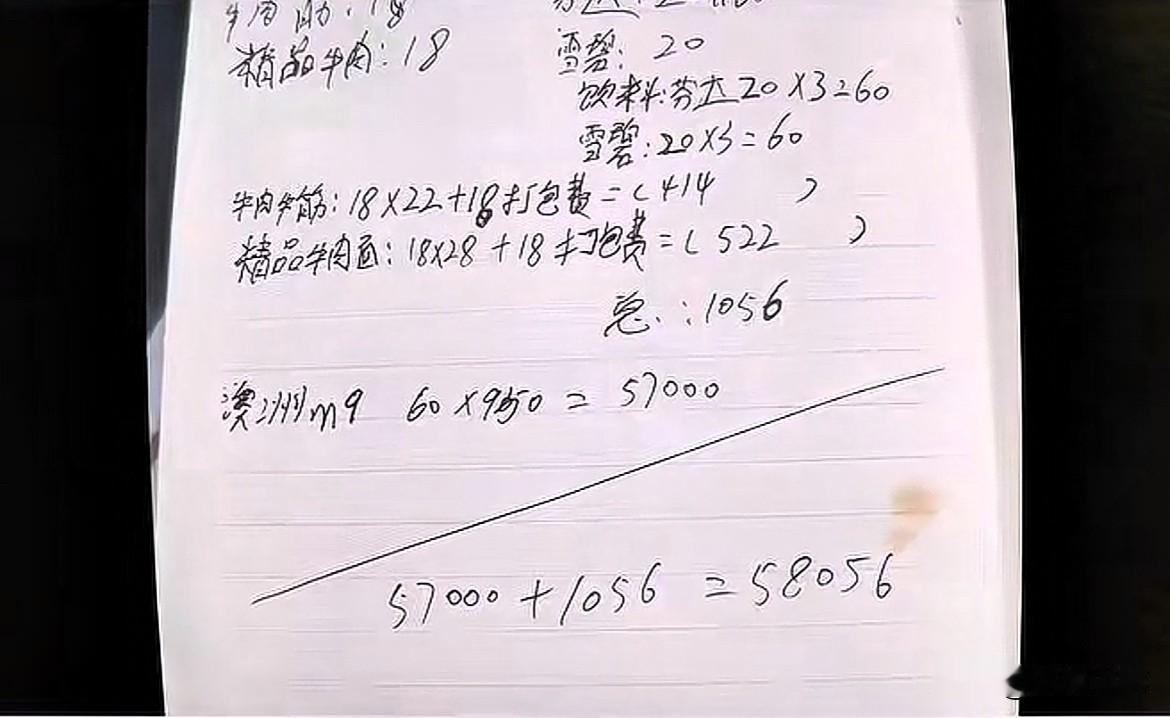 精品牛肉:18
雪碧:20
饮料:芬达20×3=60
雪碧:20×3=60
牛肉牛筋:18×22+18打包费=(414 )
精品牛肉面:18×28+18打包费=(522 )
总:1056
澳洲m9 60×950=57000
57000+1056=58056